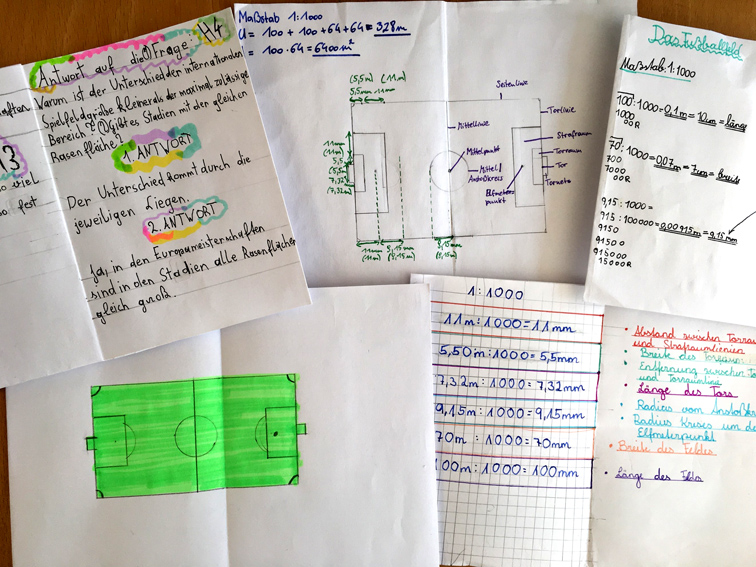 H4
Antwort auf die Frage:
Warum ist der Unterschied der internationalen
Spielfeldgröße kleiner als der maximal zulässige
Bereich? Gibt es Stadien mit den gleichen
Rasenfläche?
1. ANTWORT
Der Unterschied kommt durch die
jeweiligen Liegen.
2. ANTWORT
Ja, in den Europameisterschaften
sind in den Stadien alle Rasenflächen
gleich groß.
3
so viel
so fest
Maßstab 1:1000
U = 100 + 100 + 64 + 64 = 328m
= 100 · 64 = 6400 m²
(5,5m) (11m)
5,5mm 11mm
Seitenlinie
Mittellinie
Torlinie
Strafraum
Mittelpunkt
Torraum
Mittel/
Anstoßkreis
Tor
Elfmeter
punkt
Tornetz
11mm
(11m)
5,5
(5,5m)
7,32
(7,32m)
11mm
(11m)
9,15mm
(9,15m)
9,15mm
(9,15m)
Das Fußballfeld
Maßstab: 1:1000
100 : 1000 = 0,1m = 10cm = länge
1000
000R
70 : 1000 = 0,07m = 7cm = breite
700
7000
00R
9,15 : 1000 =
915 : 100000 = 0,00915m = 9,15mm
9150
91500
915000
15000R
1:1000
11m : 1000 = 11mm
5,50m : 1000 = 5,5mm
7,32m : 1000 = 7,32mm
9,15m : 1000 = 9,15mm
70m : 1000 = 70mm
100m : 1000 = 100mm
Abstand zwischen Torrau
und Strafraumlienien
Breite des Torraumes
Entfernung zwischen Tor
und Torraumlinie
Länge des Tors
Radius vom Anstoßkr
Radius Kreises um de
Elfmeterpunkt
Breite des Feldes
Länge des Felds